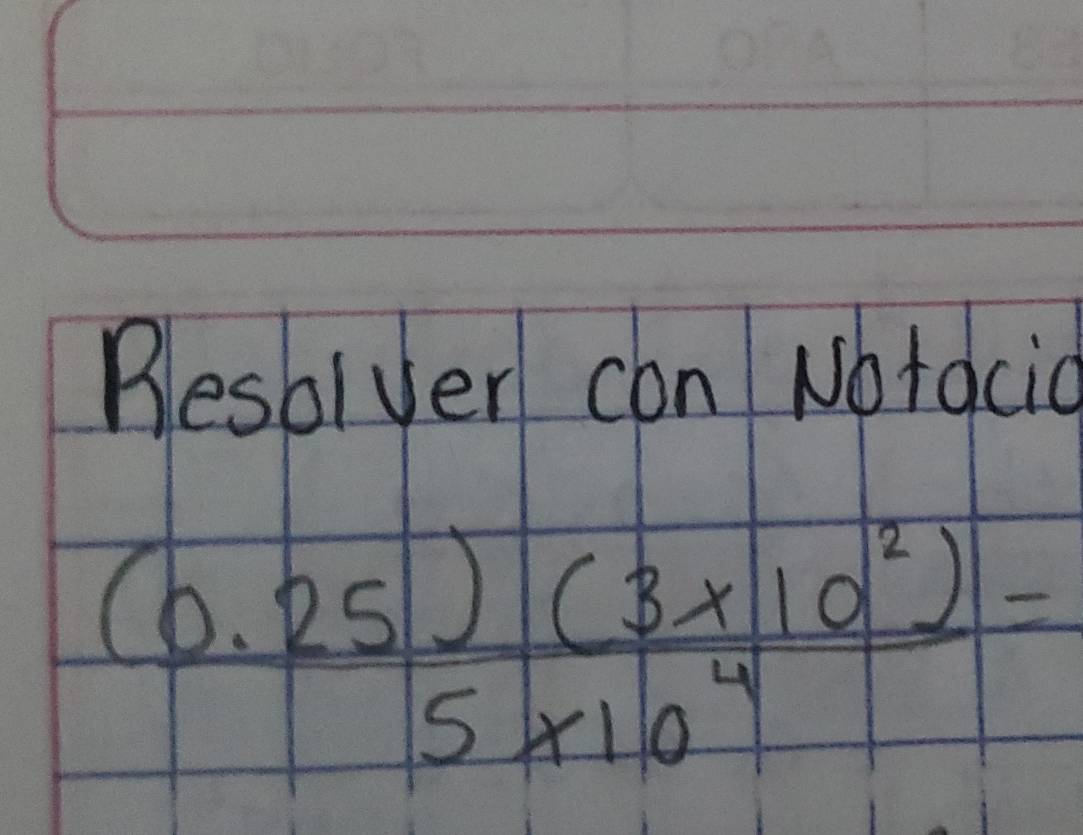 Resolver con Notacio
(0.25) (3x10²) =
5x10⁴